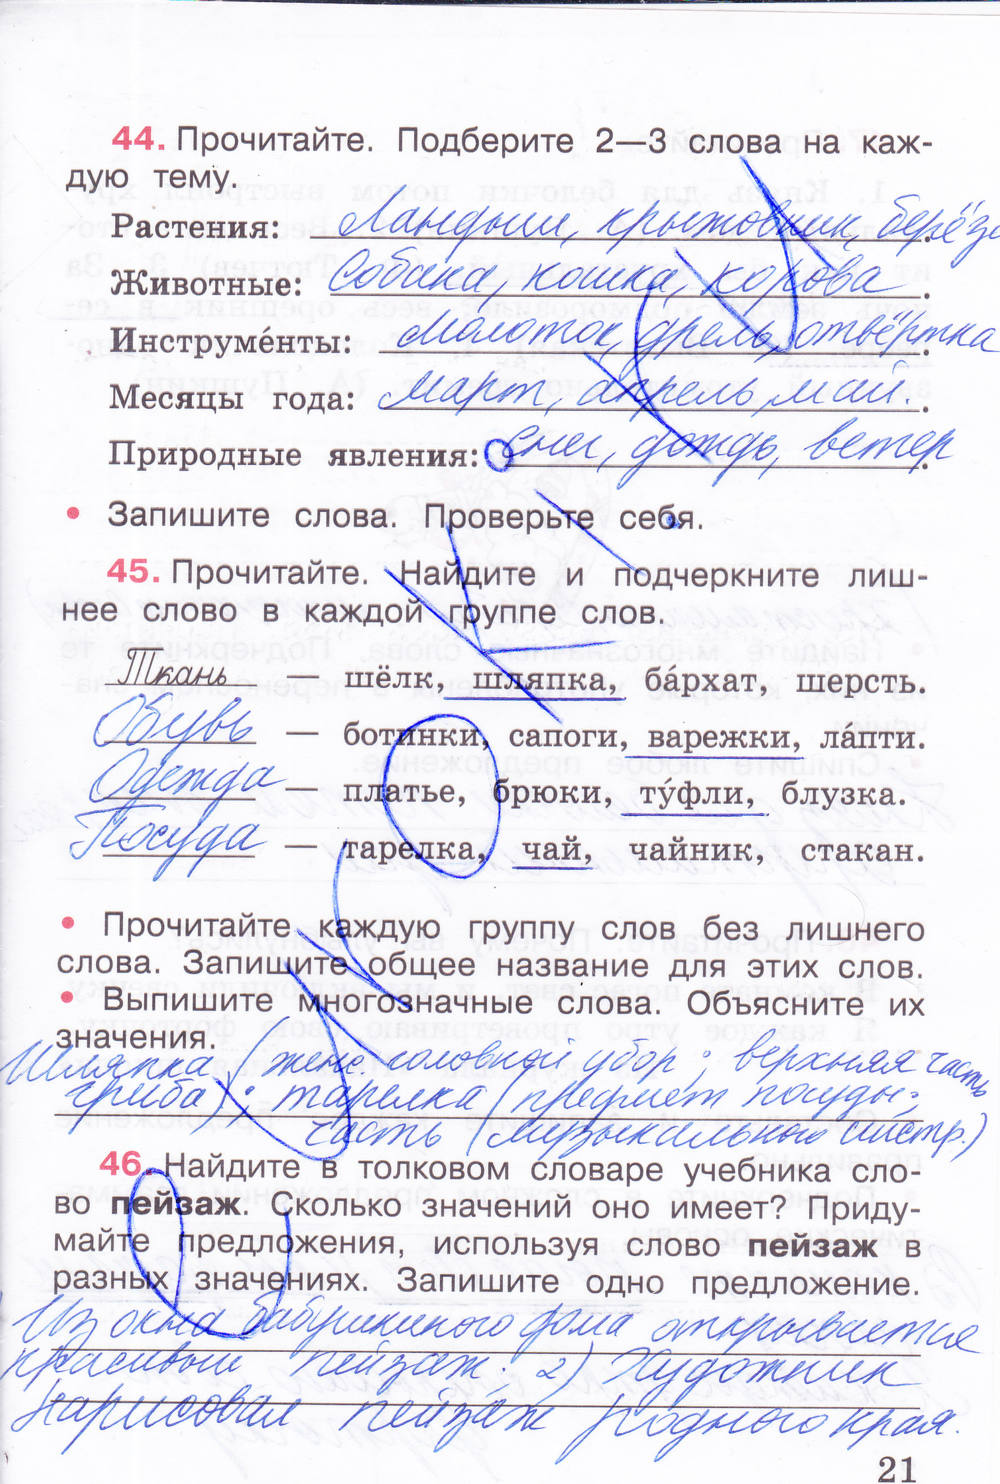 44. Прочитайте. Подберите 2—3 слова на каж-
дую тему.
Растения: Ландыш, крыжовник, берёза.
Животные: Собака, кошка, корова.
Инструме́нты: Молоток, дрель, отвёртка.
Месяцы года: март, апрель, май.
Природные явления: Снег, дождь, ветер.
• Запишите слова. Проверьте себя.
45. Прочитайте. Найдите и подчеркните лиш-
нее слово в каждой группе слов.
Ткань — шёлк, шляпка, ба́рхат, шерсть.
Обувь — ботинки, сапоги, варежки, ла́пти.
Одежда — платье, брюки, ту́фли, блузка.
Посуда — тарелка, чай, чайник, стакан.
• Прочитайте каждую группу слов без лишнего
слова. Запишите общее название для этих слов.
• Выпишите многозначные слова. Объясните их
значения.
Шляпка (жен. головной убор; верхняя часть
гриба); тарелка (предмет посуды;
часть (музыкальном инстр.)
46. Найдите в толковом словаре учебника сло-
во пейзаж. Сколько значений оно имеет? Приду-
майте предложения, используя слово пейзаж в
разных значениях. Запишите одно предложение.
Из окна бабушкиного дома открывается
красивый пейзаж. 2) Художник
нарисовал пейзаж родного края.
21